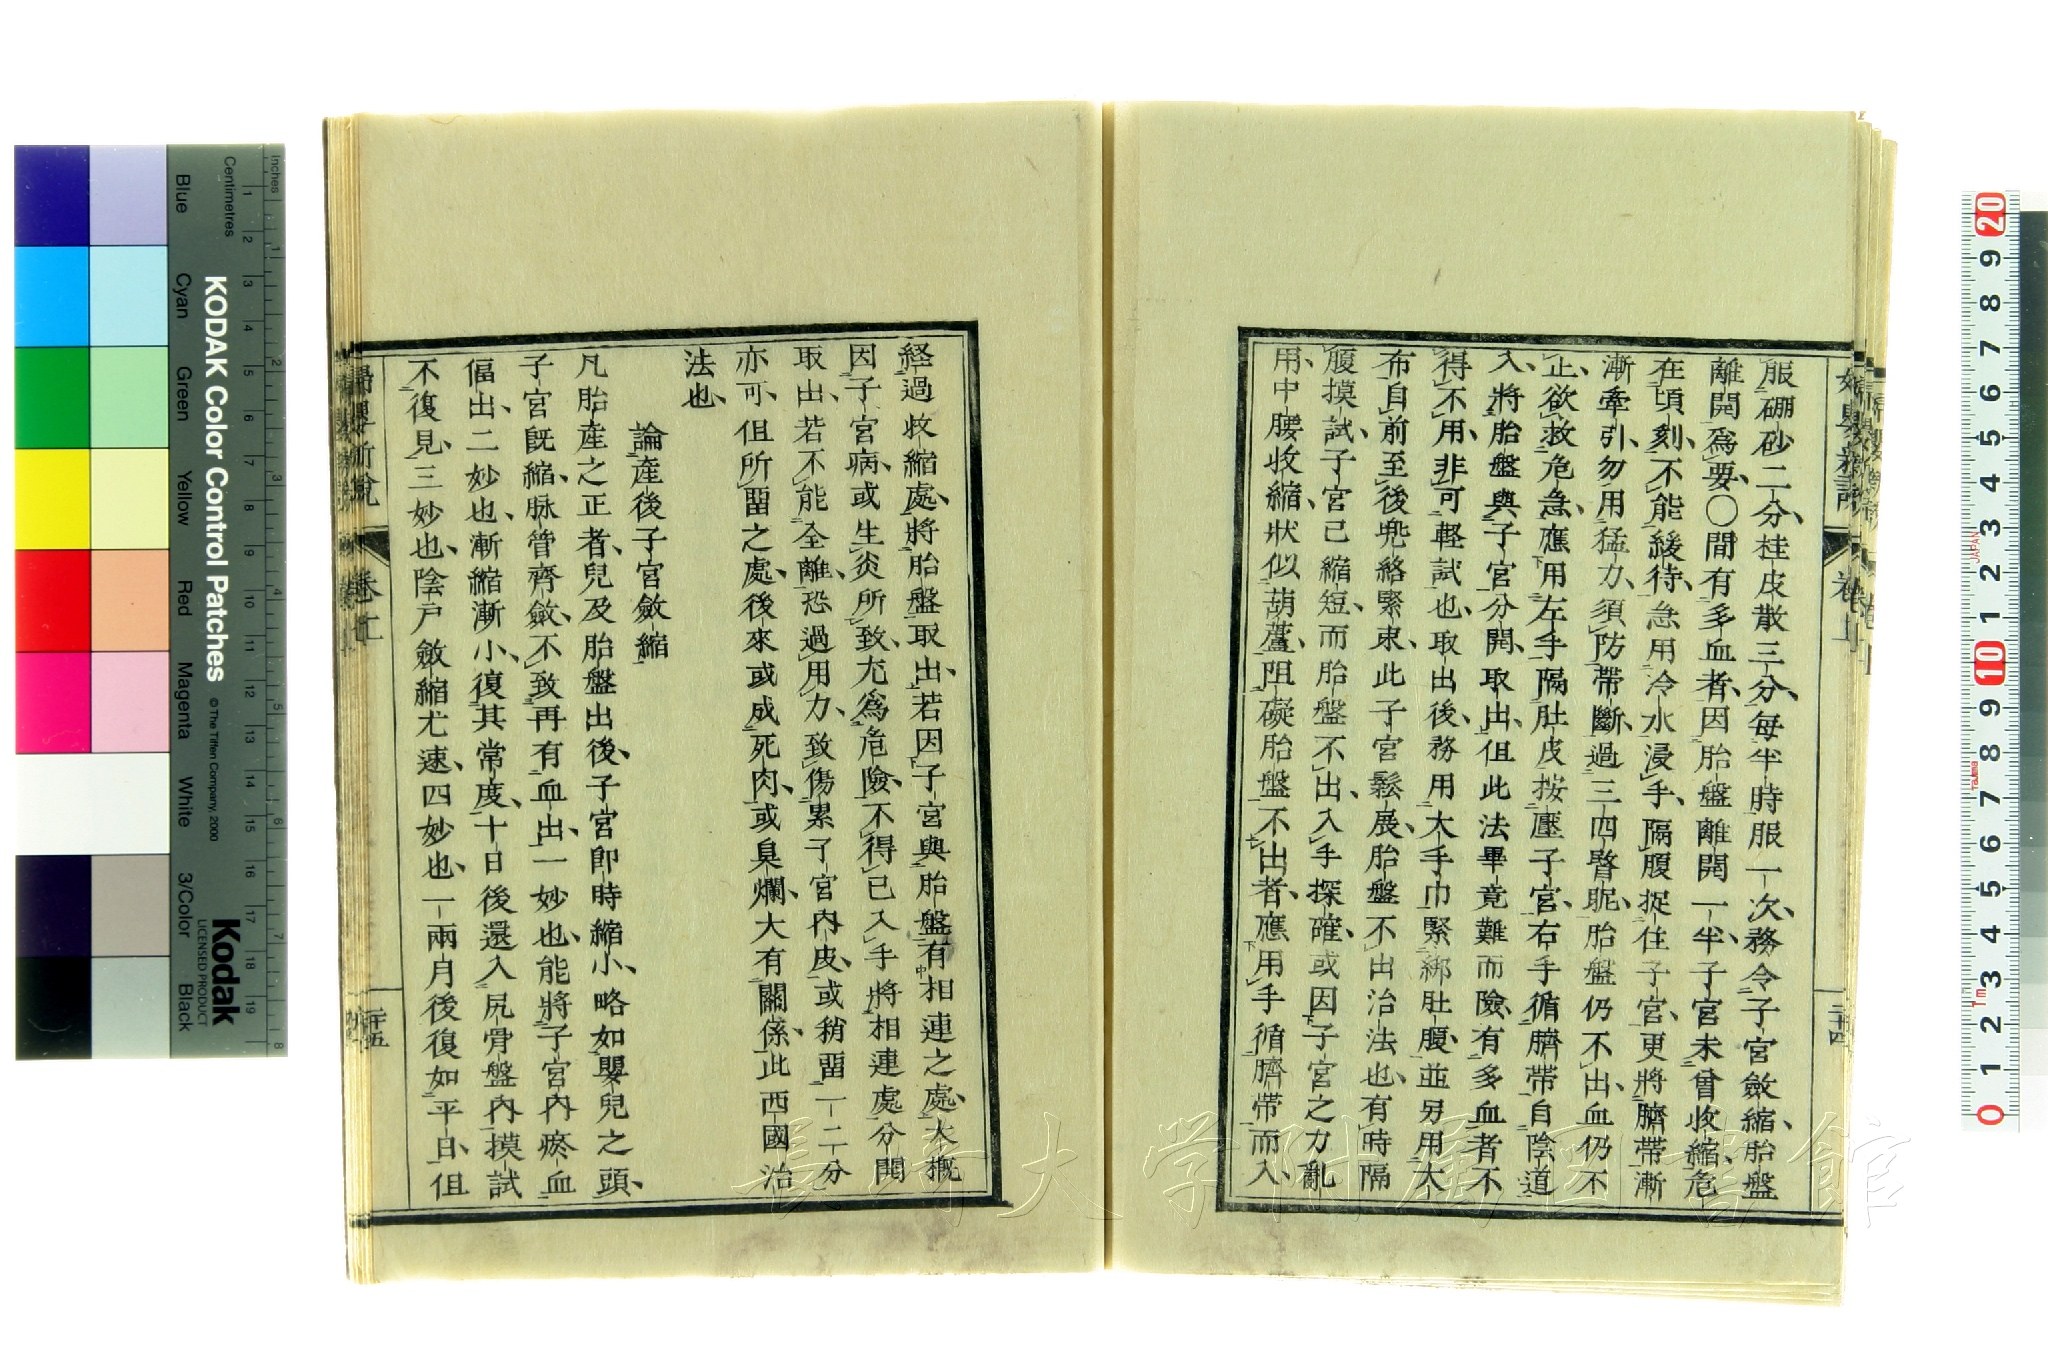 服硼砂二分、桂皮散三分、每半時服一次、務令子宮斂縮、胎盤
離開爲要、〇間有多血者、因胎盤離開一半、子宮未曾收縮、危
在頃刻、不能緩待、急用冷水浸手、隔腹捉住子宮、更將臍帶漸
漸牽引、勿用猛力、須防帶斷、過三四瞥眤、胎盤仍不出、血仍不
止、欲救危急、應用左手隔肚皮按壓子宮、右手循臍帶自陰道
入、將胎盤與子宮分開、取出、但此法畢竟難而險、有多血者不
得不用、非可輕試也、取出後、務用大手巾緊綁肚腹、並另用大
布自前至後兜絡緊束、此子宮鬆展、胎盤不出治法也、有時隔
腹摸試、子宮已縮短、而胎盤不出、入手探確、或因子宮之力亂
用、中腰收縮、狀似葫蘆、阻礙胎盤不出者、應用手循臍帶而入、
二十四
経過收縮處、將胎盤取出、若因子宮與胎盤有相連之處、大概
因子宮病、或生炎所致、尤爲危險、不得已入手將相連處分開
取出、若不能全離、恐過用力、致傷累子宮內皮、或稍留一二分
亦可、但所留之處、後來或成死肉、或臭爛、大有關係、此西國治
法也、
論產後子宮斂縮
凡胎產之正者、兒及胎盤出後、子宮即時縮小、略如嬰兒之頭、
子宮旣縮、脉管齊斂、不致再有血出、一妙也、能將子宮內瘀血
偪出、二妙也、漸縮漸小、復其常度、十日後還入尻骨盤內、摸試
不復見、三妙也、陰戶斂縮尤速、四妙也、一兩月後復如平日、但
二十五
Inches
Centimetres
KODAK Color Control Patches
© The Tiffen Company, 2000
Kodak
LICENSED PRODUCT
Blue
Cyan
Green
Yellow
Red
Magenta
White
3/Color
Black
長崎大学附属図書館